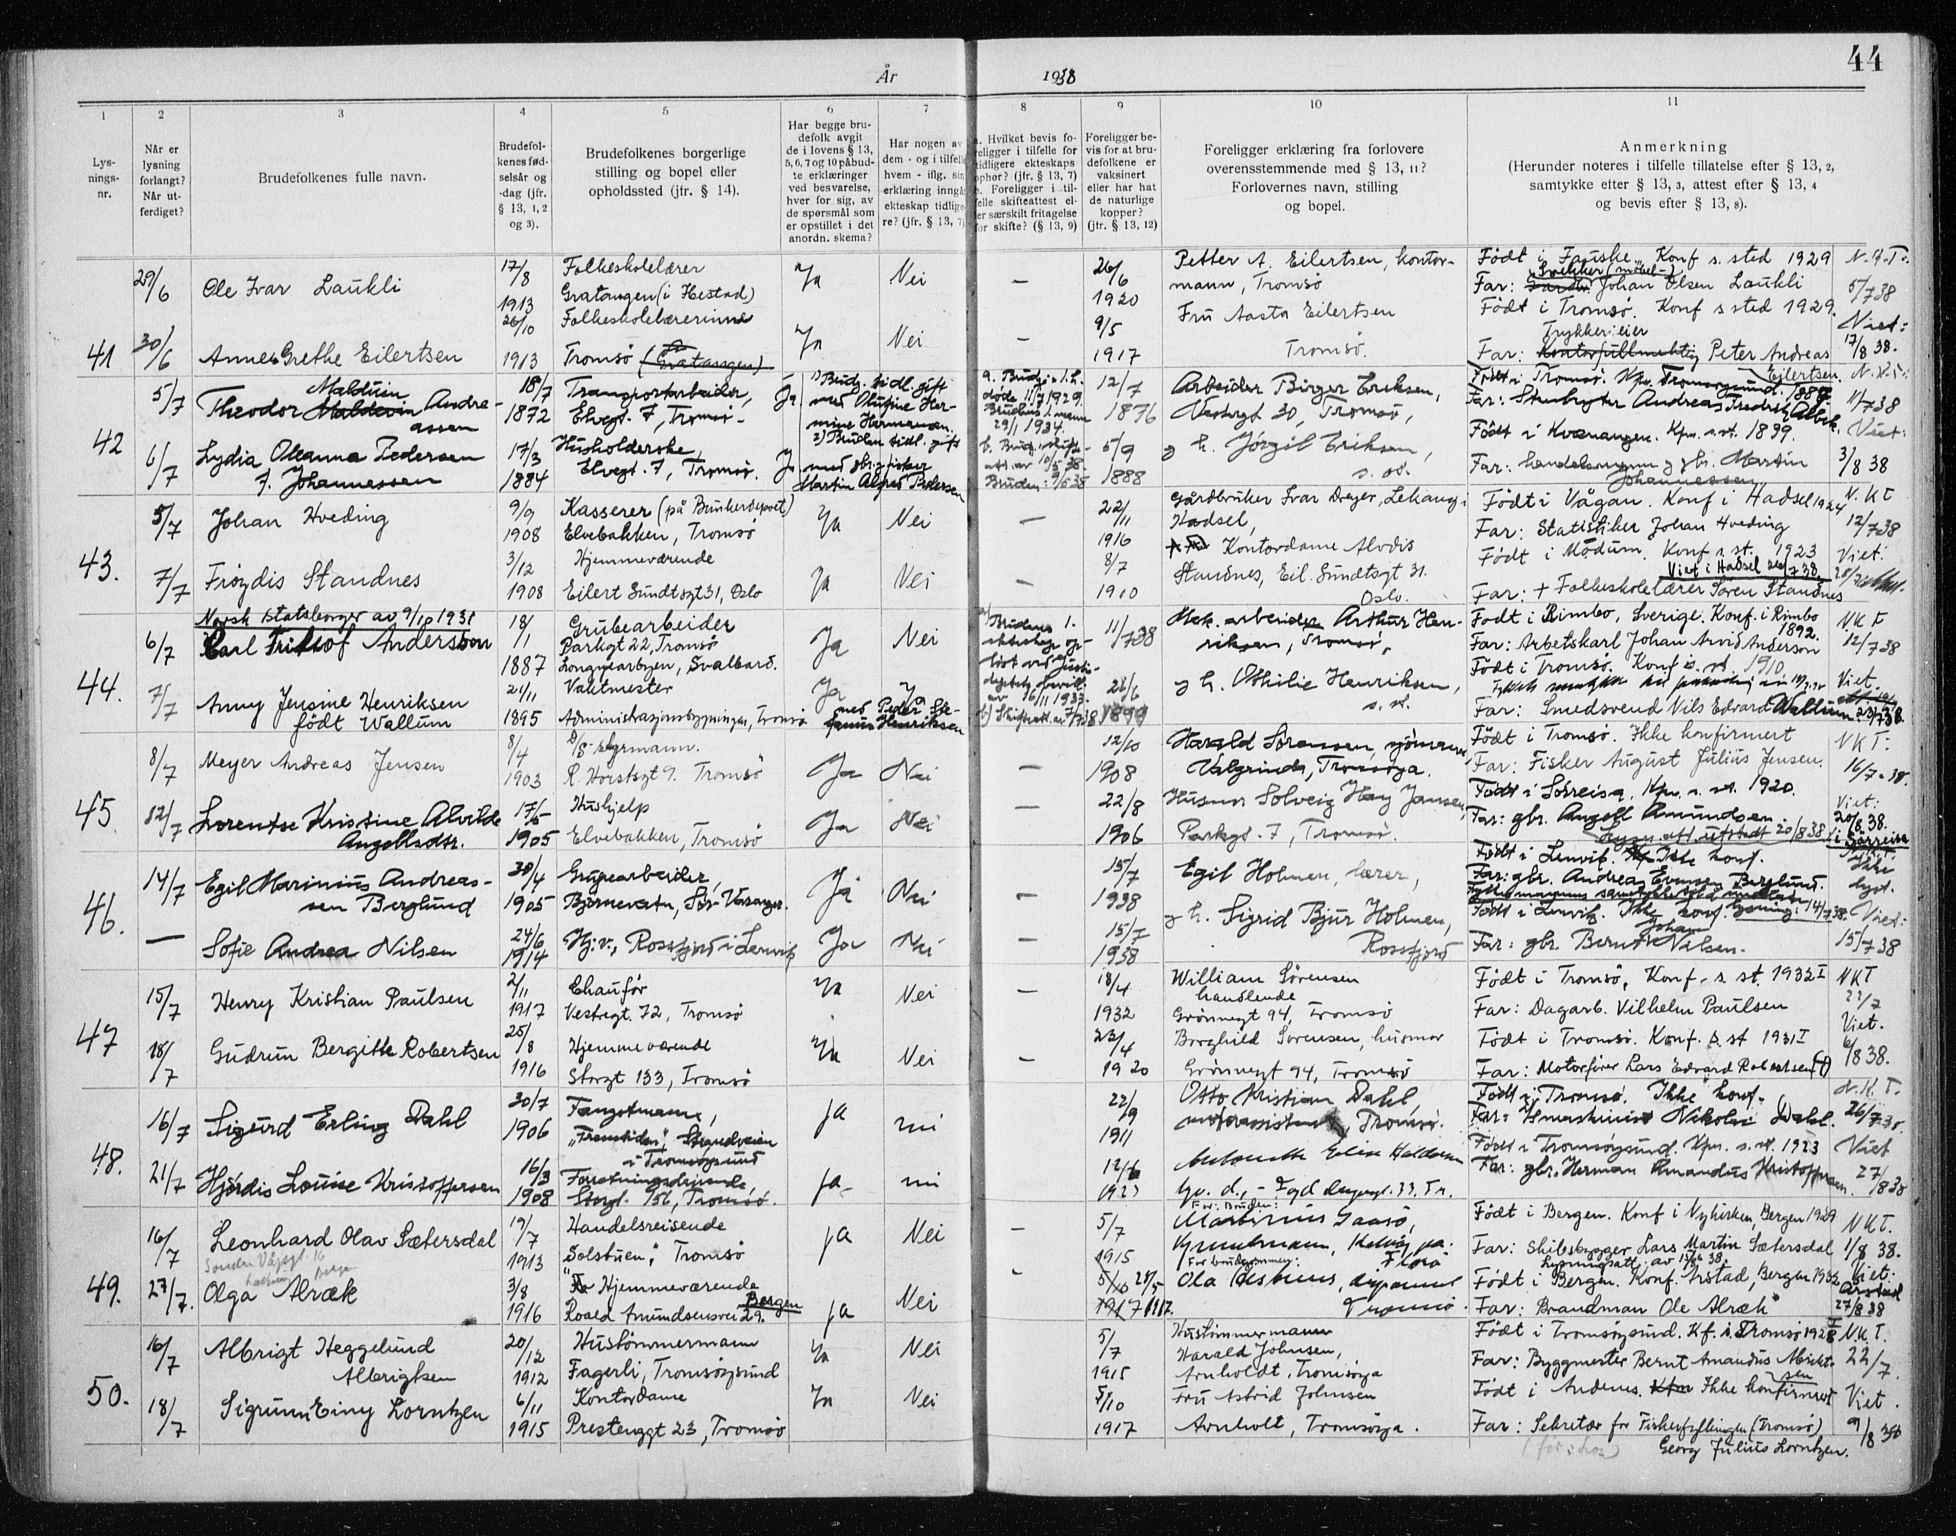 År
1938
44
1
2
3
4
5
6
7
8
9
10
11
Lys-
nings-
nr.
Når er
lysning
forlangt?
Når ut-
ferdiget?
Brudefolkenes fulle navn.
Brudefol-
kenes fød-
selsår og
-dag (jfr.
§ 13, 1, 2
og 3).
Brudefolkenes borgerlige
stilling og bopel eller
opholdssted (jfr. § 14).
Har begge bru-
defolk avgit
de i lovens § 13,
5, 6, 7 og 10 påbud-
te erklæringer
ved besvarelse,
hver for sig, av
de spørsmål som
er opstillet i det
anordn. skema?
Har nogen av
dem - og i tilfelle
hvem - iflg. sin
erklæring inngåt
ekteskap tidlige-
re? (jfr. § 13, 7)
a. Hvilket bevis fo-
religger i tilfelle for
tidligere ekteskaps
ophør? (jfr. § 13, 7)
b. Foreligger i til-
felle skifteattest el-
ler særskilt fritagelse
for skifte? (§ 13, 9)
Foreligger be-
vis for at bru-
defolkene er
vaksinert
eller har hat
de naturlige
kopper?
(jfr. § 13, 12)
Foreligger erklæring fra forlovere
overensstemmende med § 13, 11?
Forlovernes navn, stilling
og bopel.
Anmerkning
(Herunder noteres i tilfelle tillatelse efter § 13, 2,
samtykke efter § 13, 3, attest efter § 13, 4
og bevis efter § 13, 8).
41
29/6
Ole Ivar Laukli
17/8
1913
Folkeskolelærer
Gratangen (i Hestad)
Ja
Nei
—
26/6
1920
Petter A. Eilertsen, kontor-
mann, Tromsø
Født i Fauske. Konf s. sted 1929
Far: Johan Olsen Laukli
N.K.T.
5/7 38
30/6
Annes Grethe Eilertsen
26/10
1913
Folkeskolelærerinne
Tromsø (Gratangen)
Ja
Nei
—
9/5
1917
Fru Aasta Eilertsen
Tromsø.
Født i Tromsø. Konf s sted 1929.
Trykkerieier
Far: Kontorfullmektig Peter Andreas
Eilertsen
Viet:
17/8 38.
42
5/7
Malduin
Theodor Andre-
assen
18/7
1872
Transportarbeider,
Elvegt. 7, Tromsø.
Ja
1) Brudg. tidl. gift
med Olufine Her-
mine Hermansen.
2) Bruden tidl. gift
med gbr. fisker
Martin Alfred Pedersen
12/7
1876
Arbeider Birger Eriksen,
Vestregt 30, Tromsø,
Født i Tromsø. Kfm Tromsøysund. 1888
Far: Andreas Fredrik
11/7 38
6/7
Lydia Oleanna Pedersen
f. Johannessen
17/3
1884
Husholderske
Elvegt. 7, Tromsø.
Ja
5/9
1888
g h. Jørgil Eriksen,
s. sd.
Født i Kvænangen. Kfm. s. st. 1899.
Far: handelsmann g gbr. Martin
Johannessen
Viet:
3/8 38
43.
5/7
Johan Hveding
9/9
1908
Kasserer (på Bunkerdepoet)
Elvebakken, Tromsø
Ja
Nei
—
22/11
1916
Gårdbruker Ivar Dreyer, Lekang i
Hadsel,
Født i Vågan. Konf i Hadsel 1924
Far: Statistiker Johan Hveding
N.K.T
12/7 38
7/7
Frøydis Standnes
3/12
1908
Hjemmeværende
Eilert Sundtsgt 31, Oslo
Ja
Nei
8/7
1910
Kontordame Alvdis
Standnes, Eil. Sundtsgt 31.
Oslo.
Født i Modum. Konf s. st. 1923
Viet i Hadsel 38.
Far: + Folkeskolelærer Søren Standnes
Viet:
44.
Norsk statsborger av 9/10 1931
6/7
Carl Fritiof Andersson
18/1
1887
Grubearbeider
Parkgt 22, Tromsø
Longyearbyen, Svalbard.
Ja
Nei
11/7 38
Mek. arbeider Arthur Hen-
riksen, Tromsø,
Født i Rimbo, Sverige. Konf. i Rimbo
1892.
Far: Arbetskarl Johan Arvid Anderson
N.K.T
12/7 38
7/7
Anny Jensine Henriksen
født Wallum
21/11
1895
Vaktmester
Administrasjonsbygningen, Tromsø
Ja
Ja
med Peder Ste-
fanus Henriksen
26/6
1899
g h. Othilie Henriksen,
s. st.
Født i Tromsø. Konf s. st. 1910
Far: Smedsvend Nils Edvard Wallum
Viet.
23/7 38.
45.
8/7
Meyer Andreas Jensen
8/4
1903
R. Horstsgt 9. Tromsø
Ja
Nei
—
12/10
1908
Harald Sørensen sjømann
Valgrinda, Tromsøya.
Født i Tromsø. Ikke konfirmert
Far: Fisker August Julius Jensen.
N.K.T.
16/7 - 38.
12/7
Lorentse Kristine Alvilde
Angellsdtr.
17/5
1905
Hushjelp
Elvebakken, Tromsø
Ja
Nei
—
22/8
1906
Husmor Solveig Hay Jansen,
Parkgt. 7, Tromsø.
Født i Sørreisa. Kfm. s. st. 1920.
Far: gbr. Angell Amundsen
Viet:
20/8 38.
i Sørreisa
46.
14/7
Egil Marinius Andreas-
sen Berglund
30/4
1905
Grubearbeider,
Bjørnevatn, Sør-Varanger.
Ja
Nei
—
15/7
1938
Egil Holmen, lærer,
Født i Lenvik. Ikke konf.
Far: gbr. Andreas Evensen Berglund.
Ikke
lyst.
—
Sofie Andrea Nilsen
24/6
1914
Hj. v., Rossfjord i Lenvik
Ja
Nei
—
15/7
1938
g h. Sigrid Bjur Holmen,
Rossfjord
Født i Lenvik. Ikke konf.
Far: gbr. Bernt Johan Nilsen.
Viet:
15/7 38
47
15/7
Henry Kristian Paulsen
2/11
1917
Chaufør
Vestregt. 72, Tromsø
Ja
Nei
—
18/4
1932
William Sørensen
handlende
Grønnegt 94, Tromsø
Født i Tromsø, Konf. s. st. 1932 I
Far: Dagarb. Vilhelm Paulsen
NKT
22/7
18/7
Gudrun Bergitte Robertsen
25/8
1916
Hjemmeværende
Storgt 133, Tromsø
Ja
Nei
—
23/4
1920
Borghild Sørensen, husmor
Grønnegt 94, Tromsø
Født i Tromsø. Konf. s. st 1931 I
Far: Motorfører Lars Edvard Robertsen (†)
Viet.
6/8 38.
48.
16/7
Sigurd Erling Dahl
30/7
1906
Fangstmann,
"Fremtiden", Strandveien
i Tromsøysund
ja
nei
22/9
1911
Otto Kristian Dahl,
Tromsø.
Født i Tromsø. Ikke konf.
Far: Nikolai Dahl.
N.K.T.
26/7 38.
21/7
Hjørdis Louise Kristoffersen
16/3
1908
Forretningsdrivende
Storgt. 156, Tromsø.
ja
nei
12/6
1923
Født i Tromsøysund. Kfm. s. st. 1923
Far: gbr. Herman Amandus Kristoffersen.
Viet
27/8 38
49.
16/7
Leonhard Olav Sætersdal
19/7
1913
Handelsreisende
"Solstuen", Tromsø
ja
Nei
—
5/7
1915
For Bruden:
Florø
Født i Bergen. Konf i Nykirken, Bergen 1929
Far: Skibsbygger Lars Martin Sætersdal
N.K.T.
1/8 38.
27/7.
Olga Alræk
3/8
1916
Hjemmeværende
Bergen
Roald Amundsensvei 29.
ja
Nei
-
1917.
For brudgommen:
Ola
Tromsø.
Født i Bergen. Konf. Årstad, Bergen 1932
Far: Brandman Ole Alræk
Viet:
Årstad
27/8 38
50.
16/7
Albrigt Heggelund
Albrigtsen
20/12
1912
Hustømmermann
Fagerli, Tromsøysund
Ja
Nei
5/7
1915
Hustømmermann
Harald Johnsen,
Arnholdt, Tromsøya
Født i Tromsøysund. Kf. i Tromsø 1928 I
Far: Byggmester Bernt Amandus Albrikt-
sen
N.K.T.
22/7.
18/7
Sigrunn Einy Lorntzen
6/11
1915
Kontordame
Prestenggt 23, Tromsø
Ja
Nei
5/10
1917
Fru Astrid Johnsen
Arnholt, Tromsøya.
Født i Andenes. Ikke konfirmert
Far: Sekretær for Fiskerfylkingen (Tromsø)
Georg Julius Lorntzen.
Viet.
9/8 38